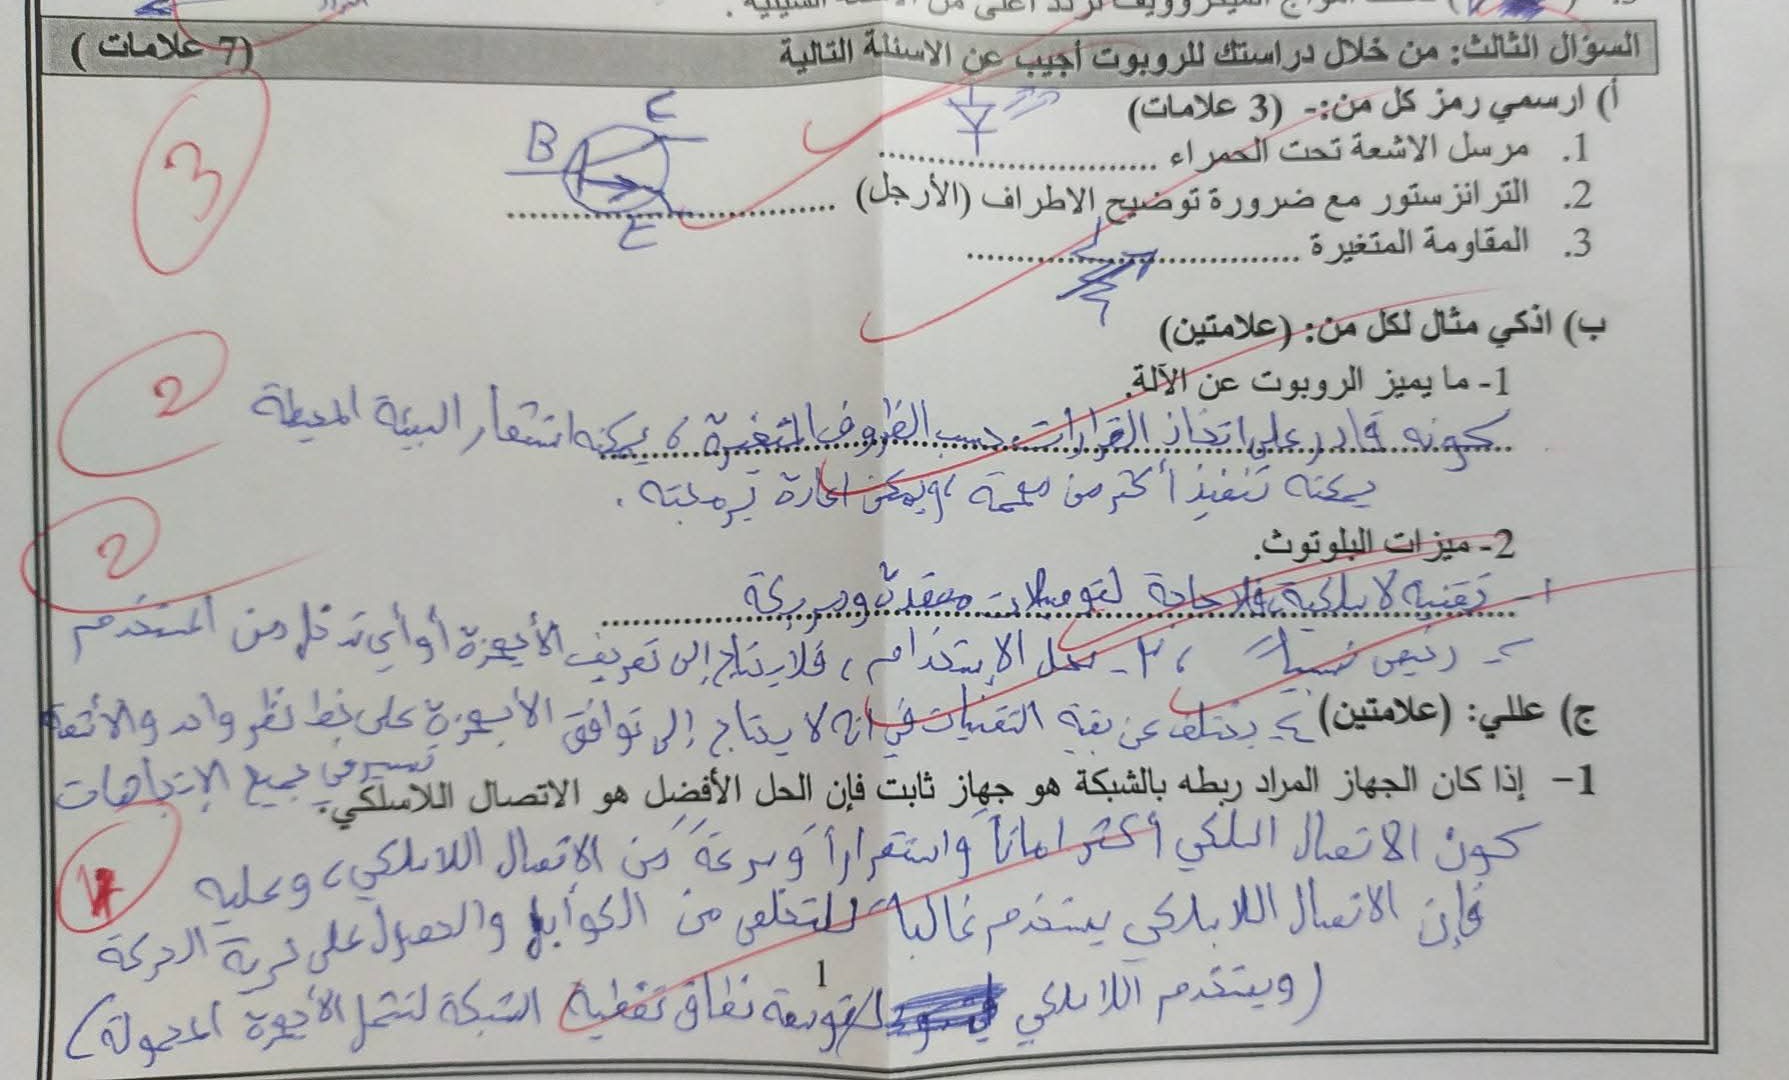 السؤال الثالث: من خلال دراستك للروبوت أجيب عن الاسئلة التالية (7 علامات )
أ) ارسمي رمز كل من:- (3 علامات)
1. مرسل الاشعة تحت الحمراء ..............................
2. الترانزستور مع ضرورة توضيح الاطراف (الأرجل) ..............................
C
B
E
3. المقاومة المتغيرة ..............................
3
ب) اذكي مثال لكل من: (علامتين)
1- ما يميز الروبوت عن الآلة.
كونه قادر على اتخاذ القرارات حسب الظروف المتغيرة ، يمكنه استشعار البيئة المحيطة
2
يمكنه تنفيذ أكثر من مهمة ، ويمكن اعادة برمجته .
2- ميزات البلوتوث.
2
١- تقنية لاسلكية، فلا حاجة لتوصيلات معقدة ومربكة
٢- رخيص نسبياً ، ٣- سهل الاستخدام ، فلا يحتاج إلى تعريف الأجهزة أو أي تدخل من المستخدم
٤- يختلف عن بقية التقنيات في انه لا يحتاج إلى توافق الأجهزة على خط نظر واحد والأشعة
تسير في جميع الإتجاهات
ج) عللي: (علامتين)
1- إذا كان الجهاز المراد ربطه بالشبكة هو جهاز ثابت فإن الحل الأفضل هو الاتصال اللاسلكي.
كون الاتصال السلكي أكثر اماناً واستقراراً وسرعة من الاتصال اللاسلكي، وعليه
فإن الاتصال اللاسلكي يستخدم غالباً للتخلص من الكوابل والحصول على حرية الحركة
(ويستخدم اللاسلكي لتوسعة نطاق تغطية الشبكة لتشمل الأجهزة المحمولة)
1